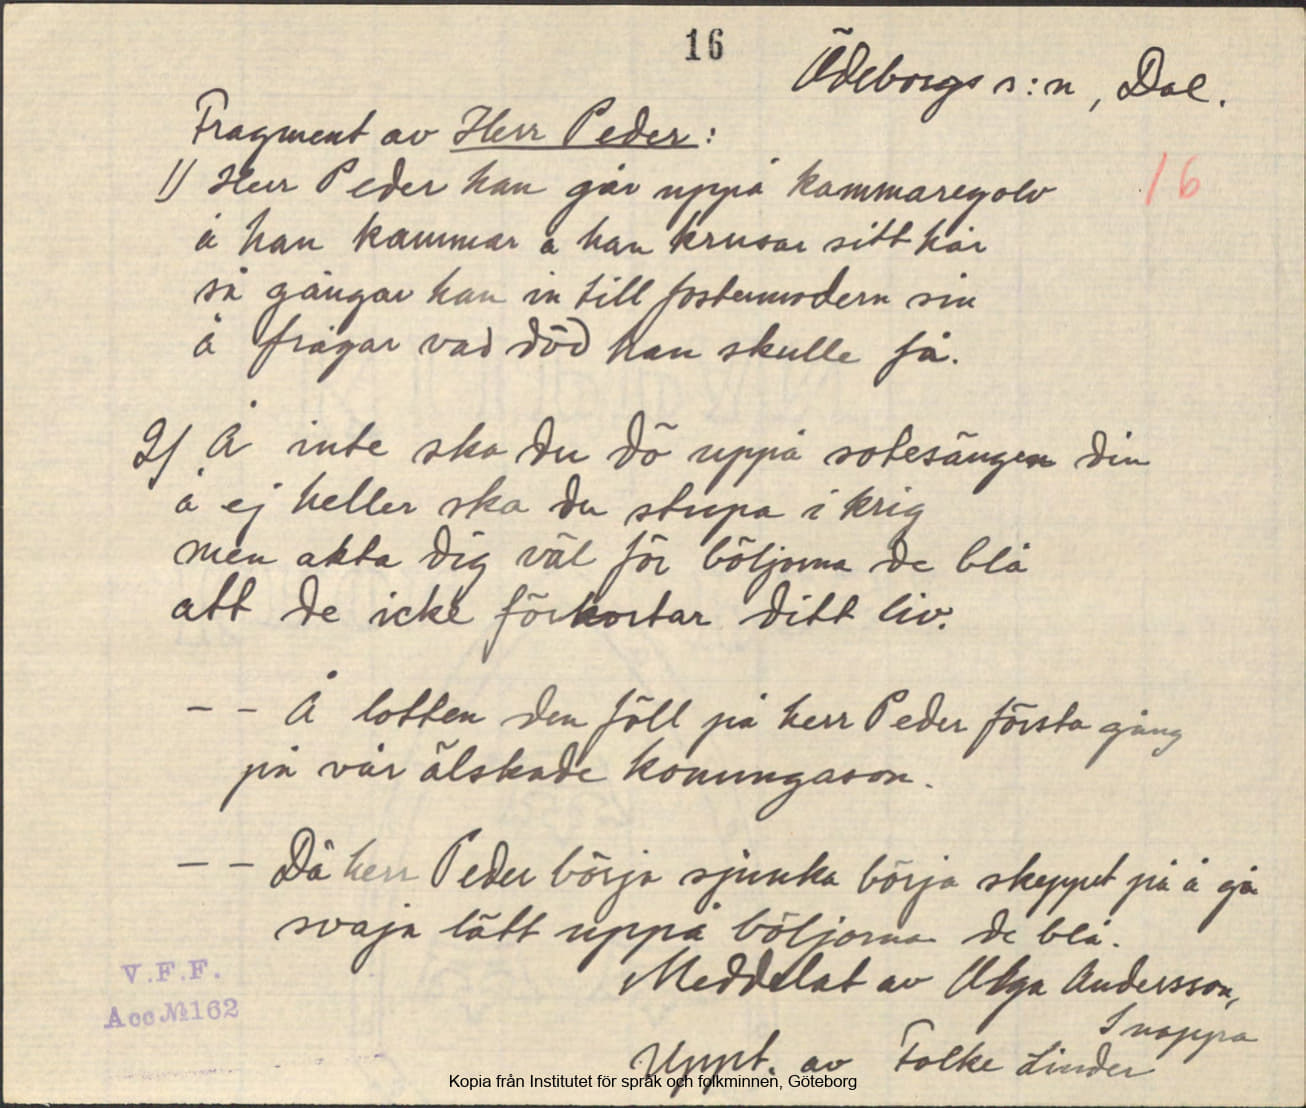 16
Ödeborgs s:n, Dal.
Fragment av Herr Peder:
16
1) Herr Peder han går uppå kammaregolv
å han kammar å han krusar sitt hår
så gångar han in till fostermodern sin
å frågar vad död han skulle få.
2) Å inte ska du dö uppå sotesängen din
å ej heller ska du stupa i krig
men akta dig väl för böljorna de blå
att de icke förkortar ditt liv.
– – Å lotten den föll på herr Peder första gång
på vår älskade konungason.
– – Då herr Peder börja sjunka börja skeppet på å gå
svaja lätt uppå böljorna de blå.
Meddelat av Olga Andersson,
Snappa
Uppt. av Folke Linder
V.F.F.
Acc № 162
Kopia från Institutet för språk och folkminnen, Göteborg